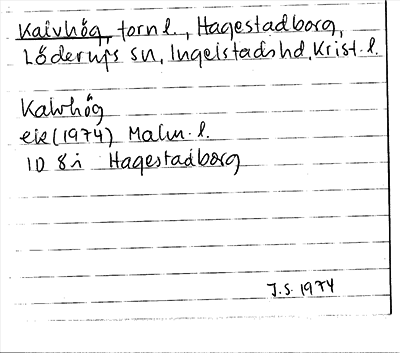 Kaivhög, torn l., Hagestadborg,
Löderups sn, Ingelstads hd, Krist. l.
Kaivhög
ek (1974) Malm. l.
1D 8i Hagestadborg
J.S. 1974